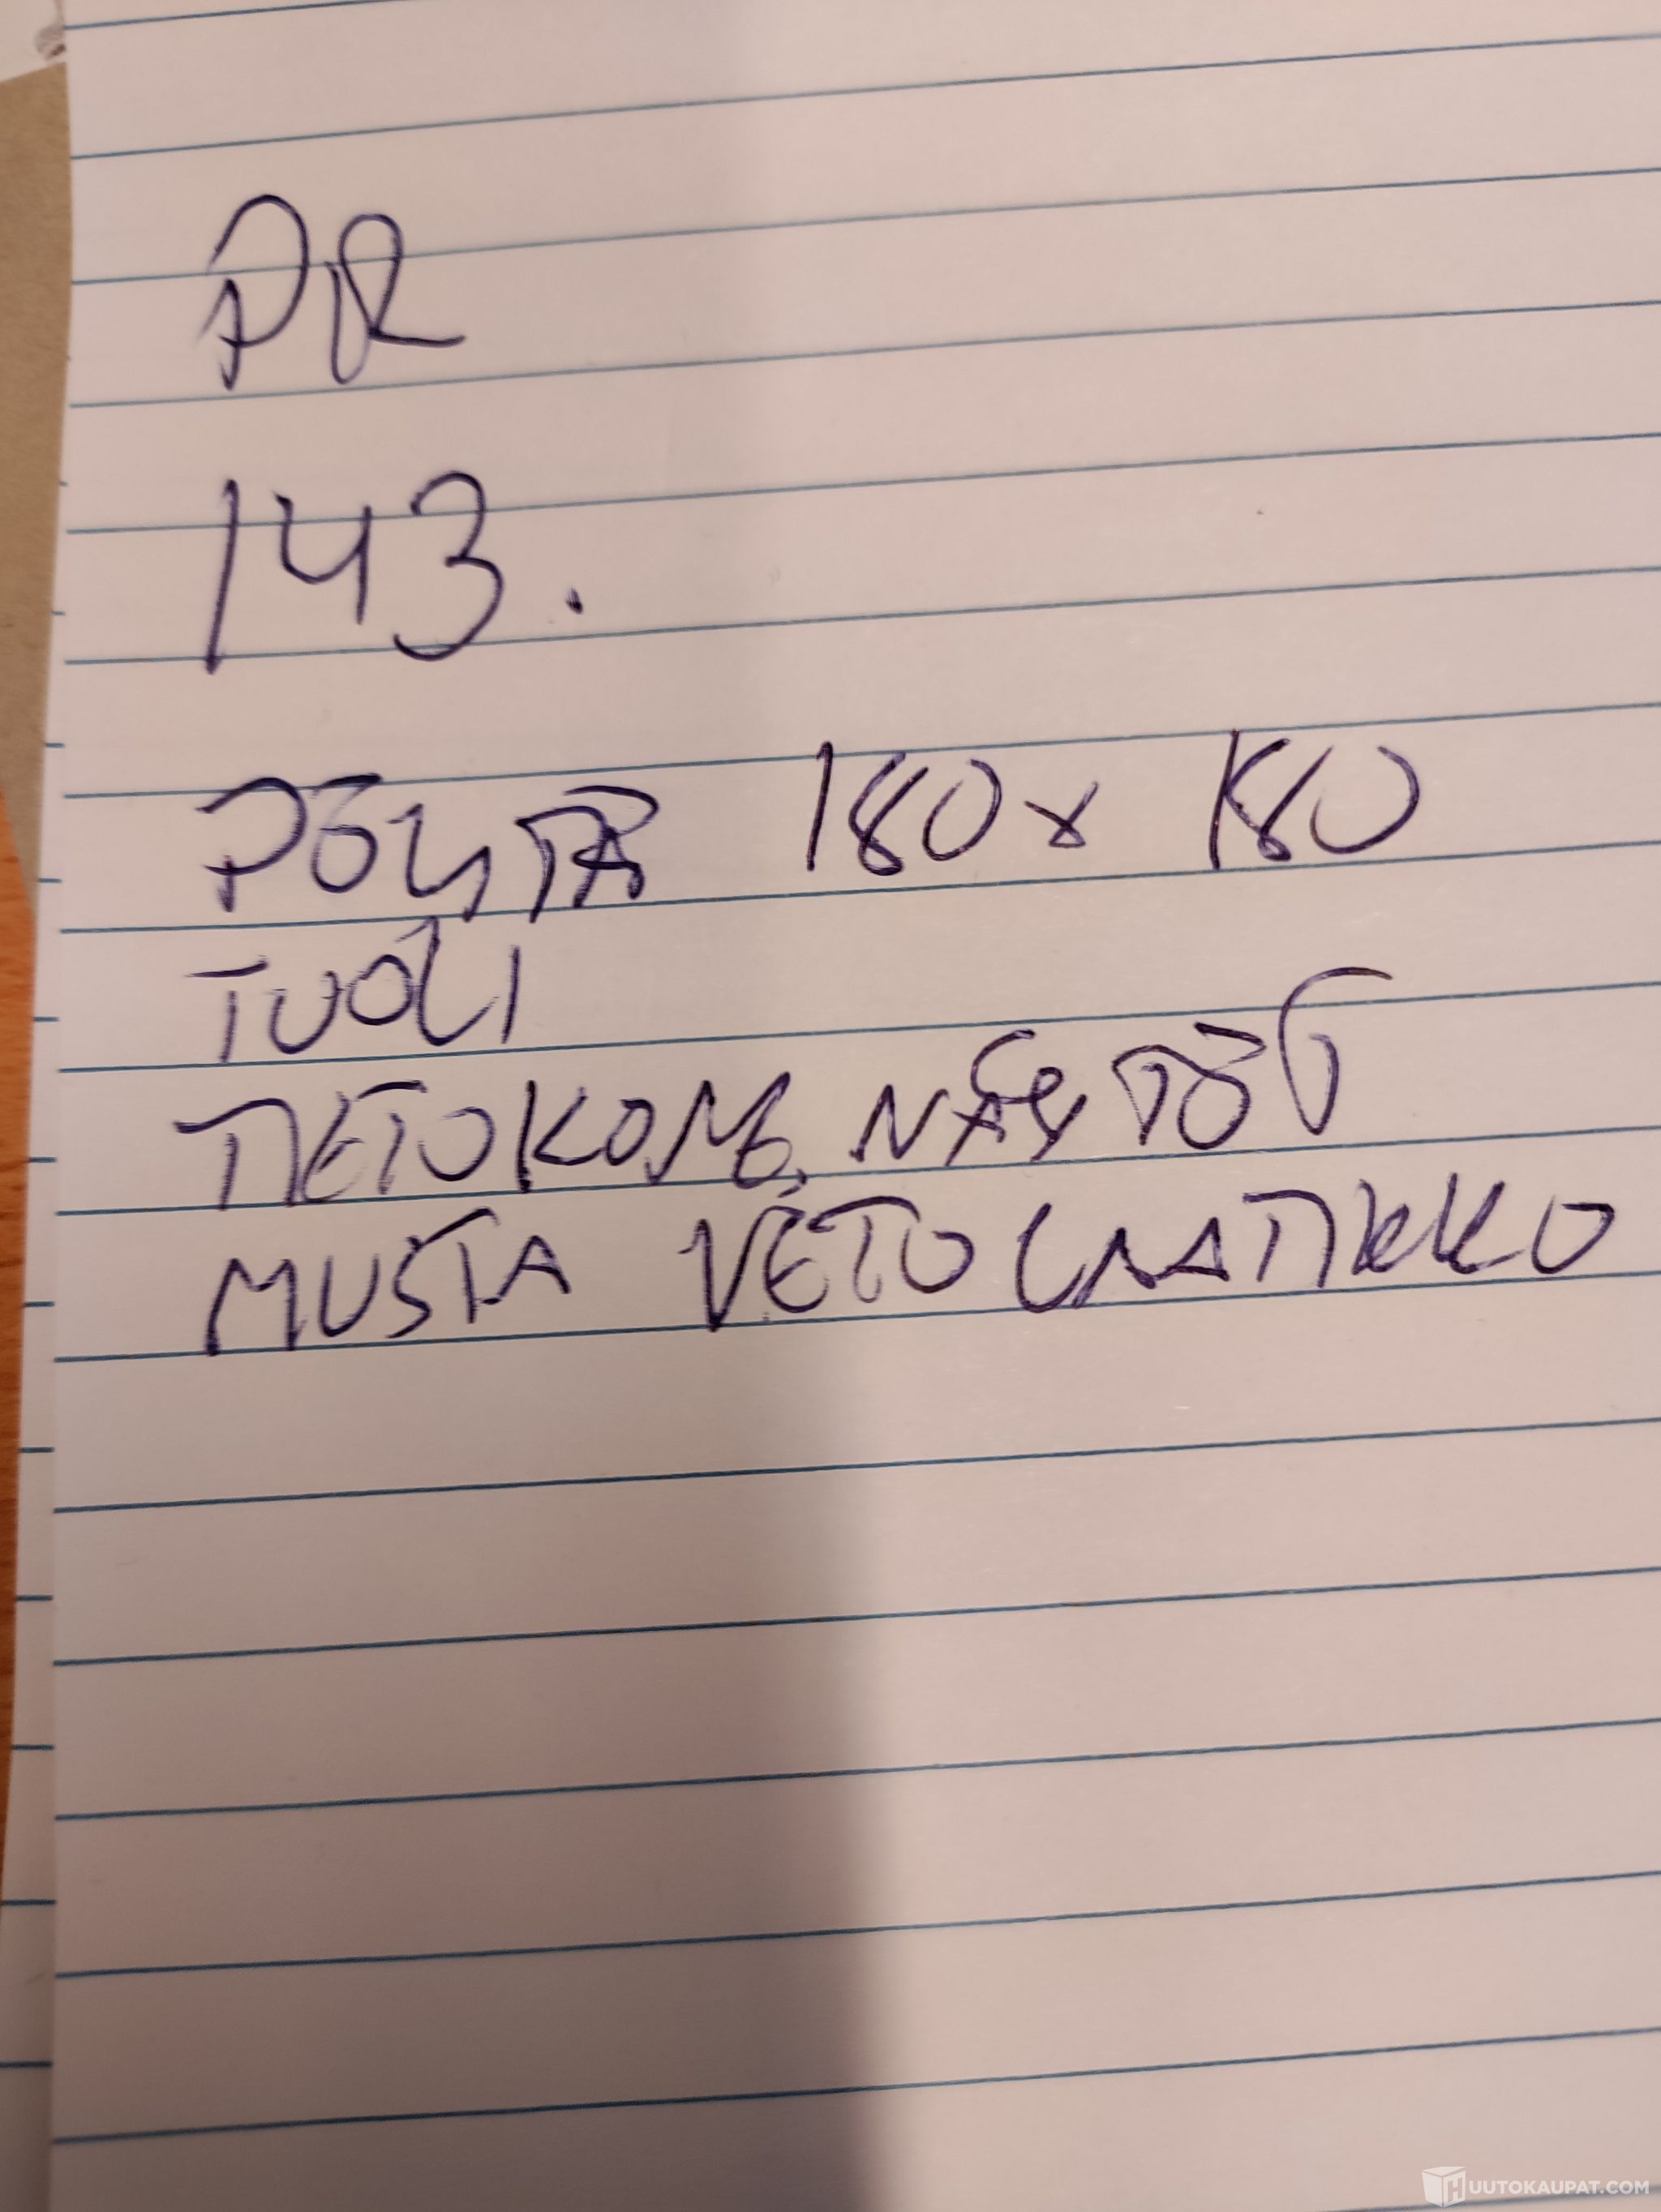 PR
143.
PÖYTÄ 180x180
TUOLI
TIETOKONE NÄYTÖT
MUSTA VETOLAATIKKO
HUUTOKAUPAT.COM